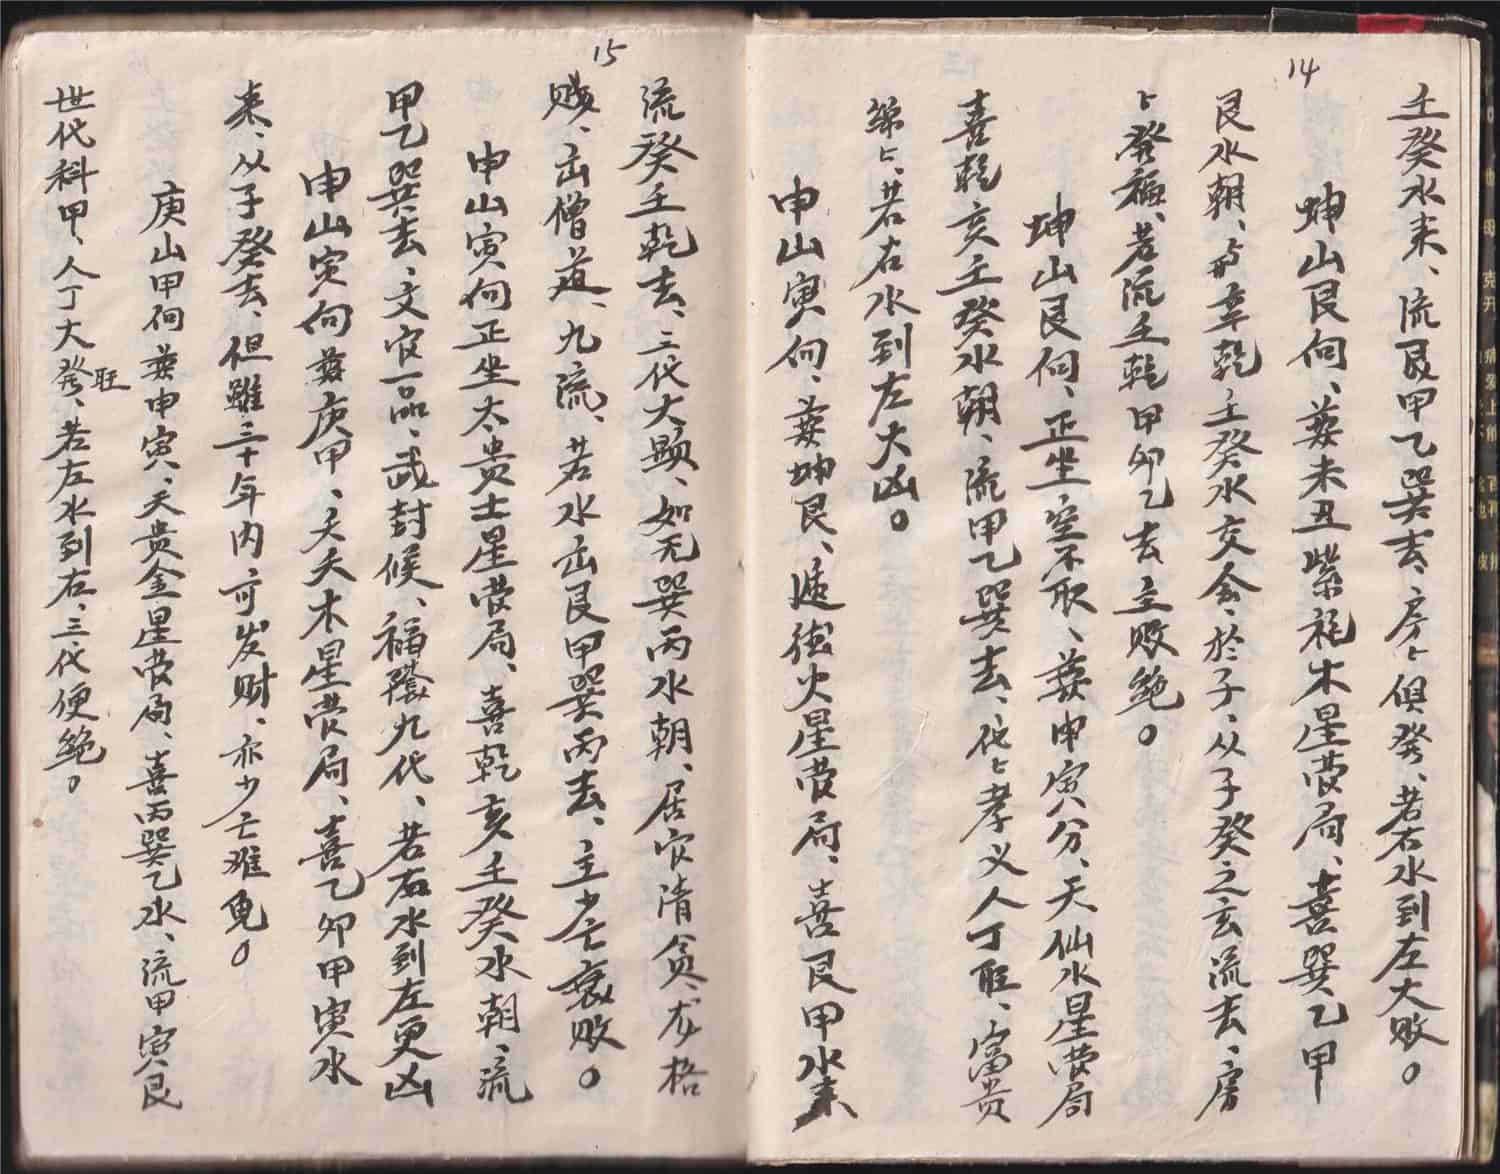 14
壬癸水来、流艮甲乙巽去、房々俱癸、若右水到左大败。
坤山艮向、兼未丑紫袍木星营局、喜巽乙甲
艮水朝、与辛乾壬癸水交会、於子、从子癸之玄流去、房
々發福、若流壬乾甲卯乙去主败绝。
坤山艮向、正坐空不取、兼申寅分、天仙水星营局
喜乾亥壬癸水朝、流甲乙巽去、代々孝义人丁旺、富贵
绵々、若右水到左大凶。
申山寅向、兼坤艮、遁徳火星营局、喜艮甲水来
15
流癸壬乾去、三代大顕、如无巽丙水朝、居官清贫、水格
贱、出僧道、九流、若水出艮甲巽丙去、主少亡衰败。
申山寅向正坐太贵士星营局、喜乾亥壬癸水朝、流
甲乙巽去、文官一品、武封候、福蔭九代、若右水到左更凶
申山寅向兼庚甲、天夭木星营局、喜乙卯甲寅水
来、从子癸去、但雖三十年内可发财、亦少亡难免。
庚山甲向兼申寅、天贵金星营局、喜丙巽乙水、流甲寅艮
世代科甲、人丁大發旺、若左水到右、三代便绝。